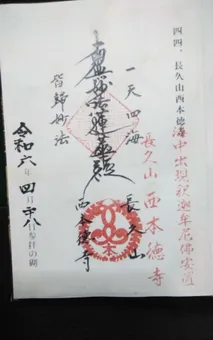 四四、長久山西本徳寺
海中出現釈迦牟尼佛安置
長久山 西本徳寺
一天四海
長久山
南無妙法蓮華経
西本徳寺
皆歸妙法
令和六年四月十八日参拝の砌